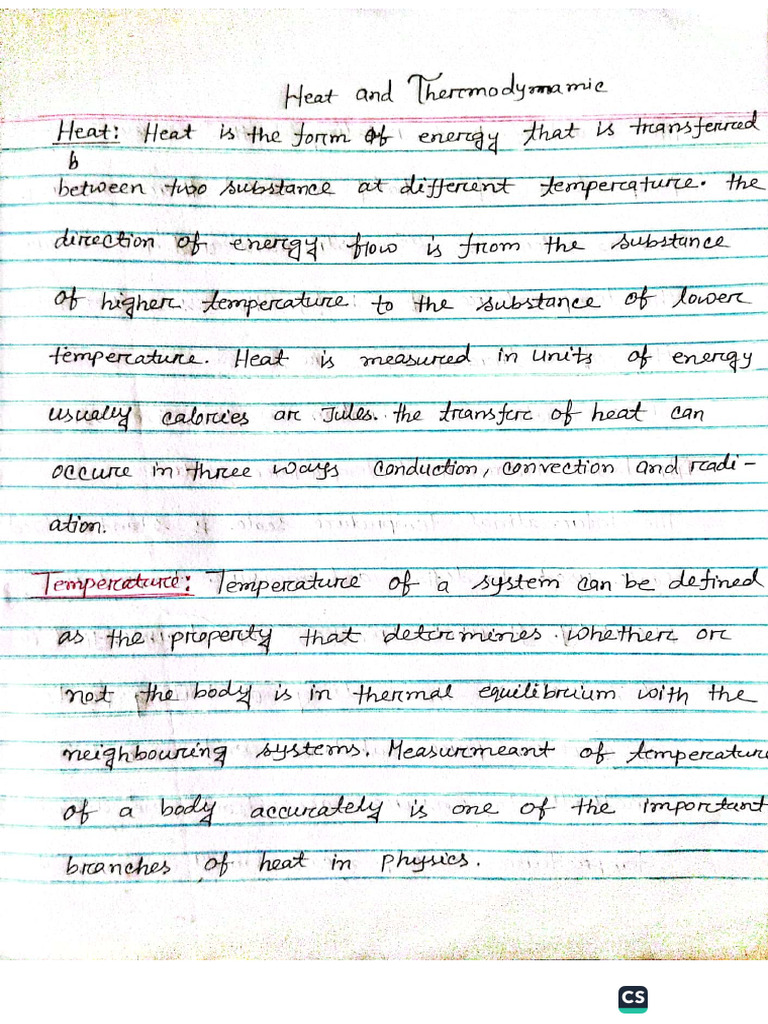 Heat and Thermodynamic
Heat: Heat is the form of energy that is transferred
b
between two substance at different temperature. the
direction of energy flow is from the substance
of higher temperature to the substance of lower
temperature. Heat is measured in units of energy
usually calories or Jules. the transfer of heat can
occure in three ways conduction, convection and radi-
ation.
Temperature: Temperature of a system can be defined
as the property that determines whether or
not the body is in thermal equilibrium with the
neighbouring systems. Measurmeant of temperature
of a body accurately is one of the important
branches of heat in physics.
CS